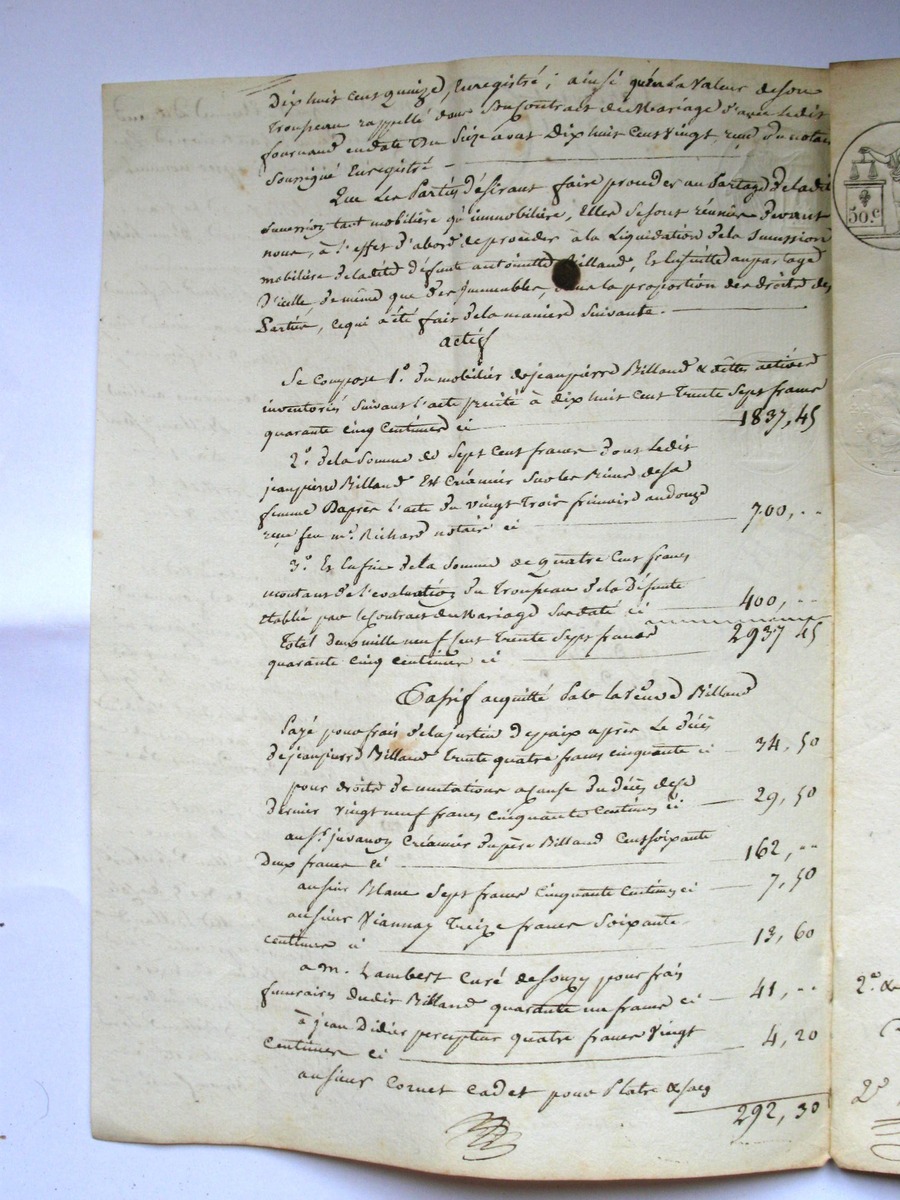 Dix huit cent quinze, Enregistré ; ainsi que la Valeur de son
Trousseau rappellé dans Son contrat de Mariage d'avec Ledit
fournand en date Du Seize avril Dix huit Cent Vingt, reçu Du notaire
Soussigné Enregistré
Que Les Parties Désirant faire proceder au Partage De ladite
Succession tant mobilière qu'immobilière, Elles Se sont réunies Devant
nous, à L'effet D'abord de proceder à la Liquidation De la Succession
mobilière De ladite Défunte antoinette Billaud, Et Ensuite au partage
D'icelle, De même que Des Immeubles, Dans la proportion des droits des
Parties, ce qui a été fait De la maniere Suivante.
actif
Se Compose 1° Du mobilier de jean pierre Billaud & dettes actives
inventoriés Suivant l'acte precité à dix huit Cent Trente Sept francs
quarante cinq Centimes ci 1837,45
2° De la Somme de Sept Cent francs Dont Ledit
jean pierre Billaud Est Créancier Sur les Biens De sa
femme D'après l'acte Du Vingt Trois frimaire an Douze
reçu feu m.e Richard notaire ci 700, --
3° Et Enfin De la Somme de quatre Cent francs
montant de L'évaluation Du Trousseau De la Défunte
établie par le Contrat de Mariage Sus daté ci 400, --
Total Deux mille neuf Cent Trente Sept francs 2937 45
quarante Cinq Centimes ci
Passif acquitté Par la veuve Billaud
Payé pour frais de la justice De paix après Le Décès
De jean pierre Billaud Trente quatre francs cinquante ci 34, 50
pour droits De mutations a cause Du Décès de ce
Dernier Vingt neuf francs Cinquante Centimes ci 29, 50
au S.r juvanon Créancier Du père Billaud Cent soixante
Deux francs ci 162, --
au sieur Blanc Sept francs Cinquante Centimes ci 7, 50
au sieur Viannay Treize francs Soixante
Centimes ci 13, 60
a M. Lambert Curé de Souzy pour frais
funeraires Du dit Billaud quarante un francs ci 41, --
à jean Didier percepteur quatre francs Vingt
Centimes ci 4, 20
au sieur Cornet Cadet pour Platre & sacs
292, 30
50.c
2° &
2°